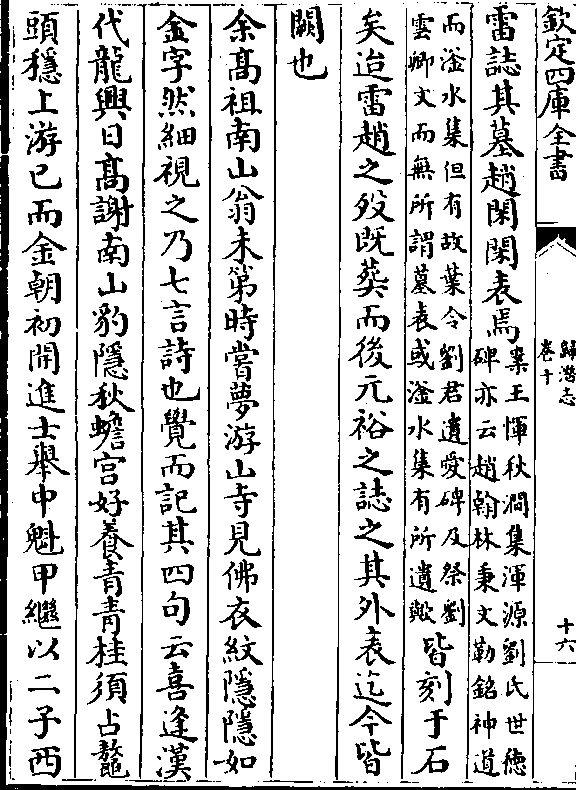 欽定四庫全書
歸潛志
卷十
十六
雷誌其墓趙閑閑表焉
案王惲秋澗集渾源劉氏世德
碑亦云趙翰林秉文勒銘神道
而滏水集但有故葉令劉君遺愛碑及祭劉
雲卿文而無所謂墓表或滏水集有所遺歟
皆刻于石
矣迨雷趙之歿既葬而後元裕之誌之其外表迄今皆
闕也
余髙祖南山翁未第時嘗夢游山寺見佛衣紋隱隱如
金字然細視之乃七言詩也覺而記其四句云喜逢漢
代龍興日髙謝南山豹隱秋蟾宫好養青青桂須占鼇
頭穩上游已而金朝初開進士舉中魁甲繼以二子西